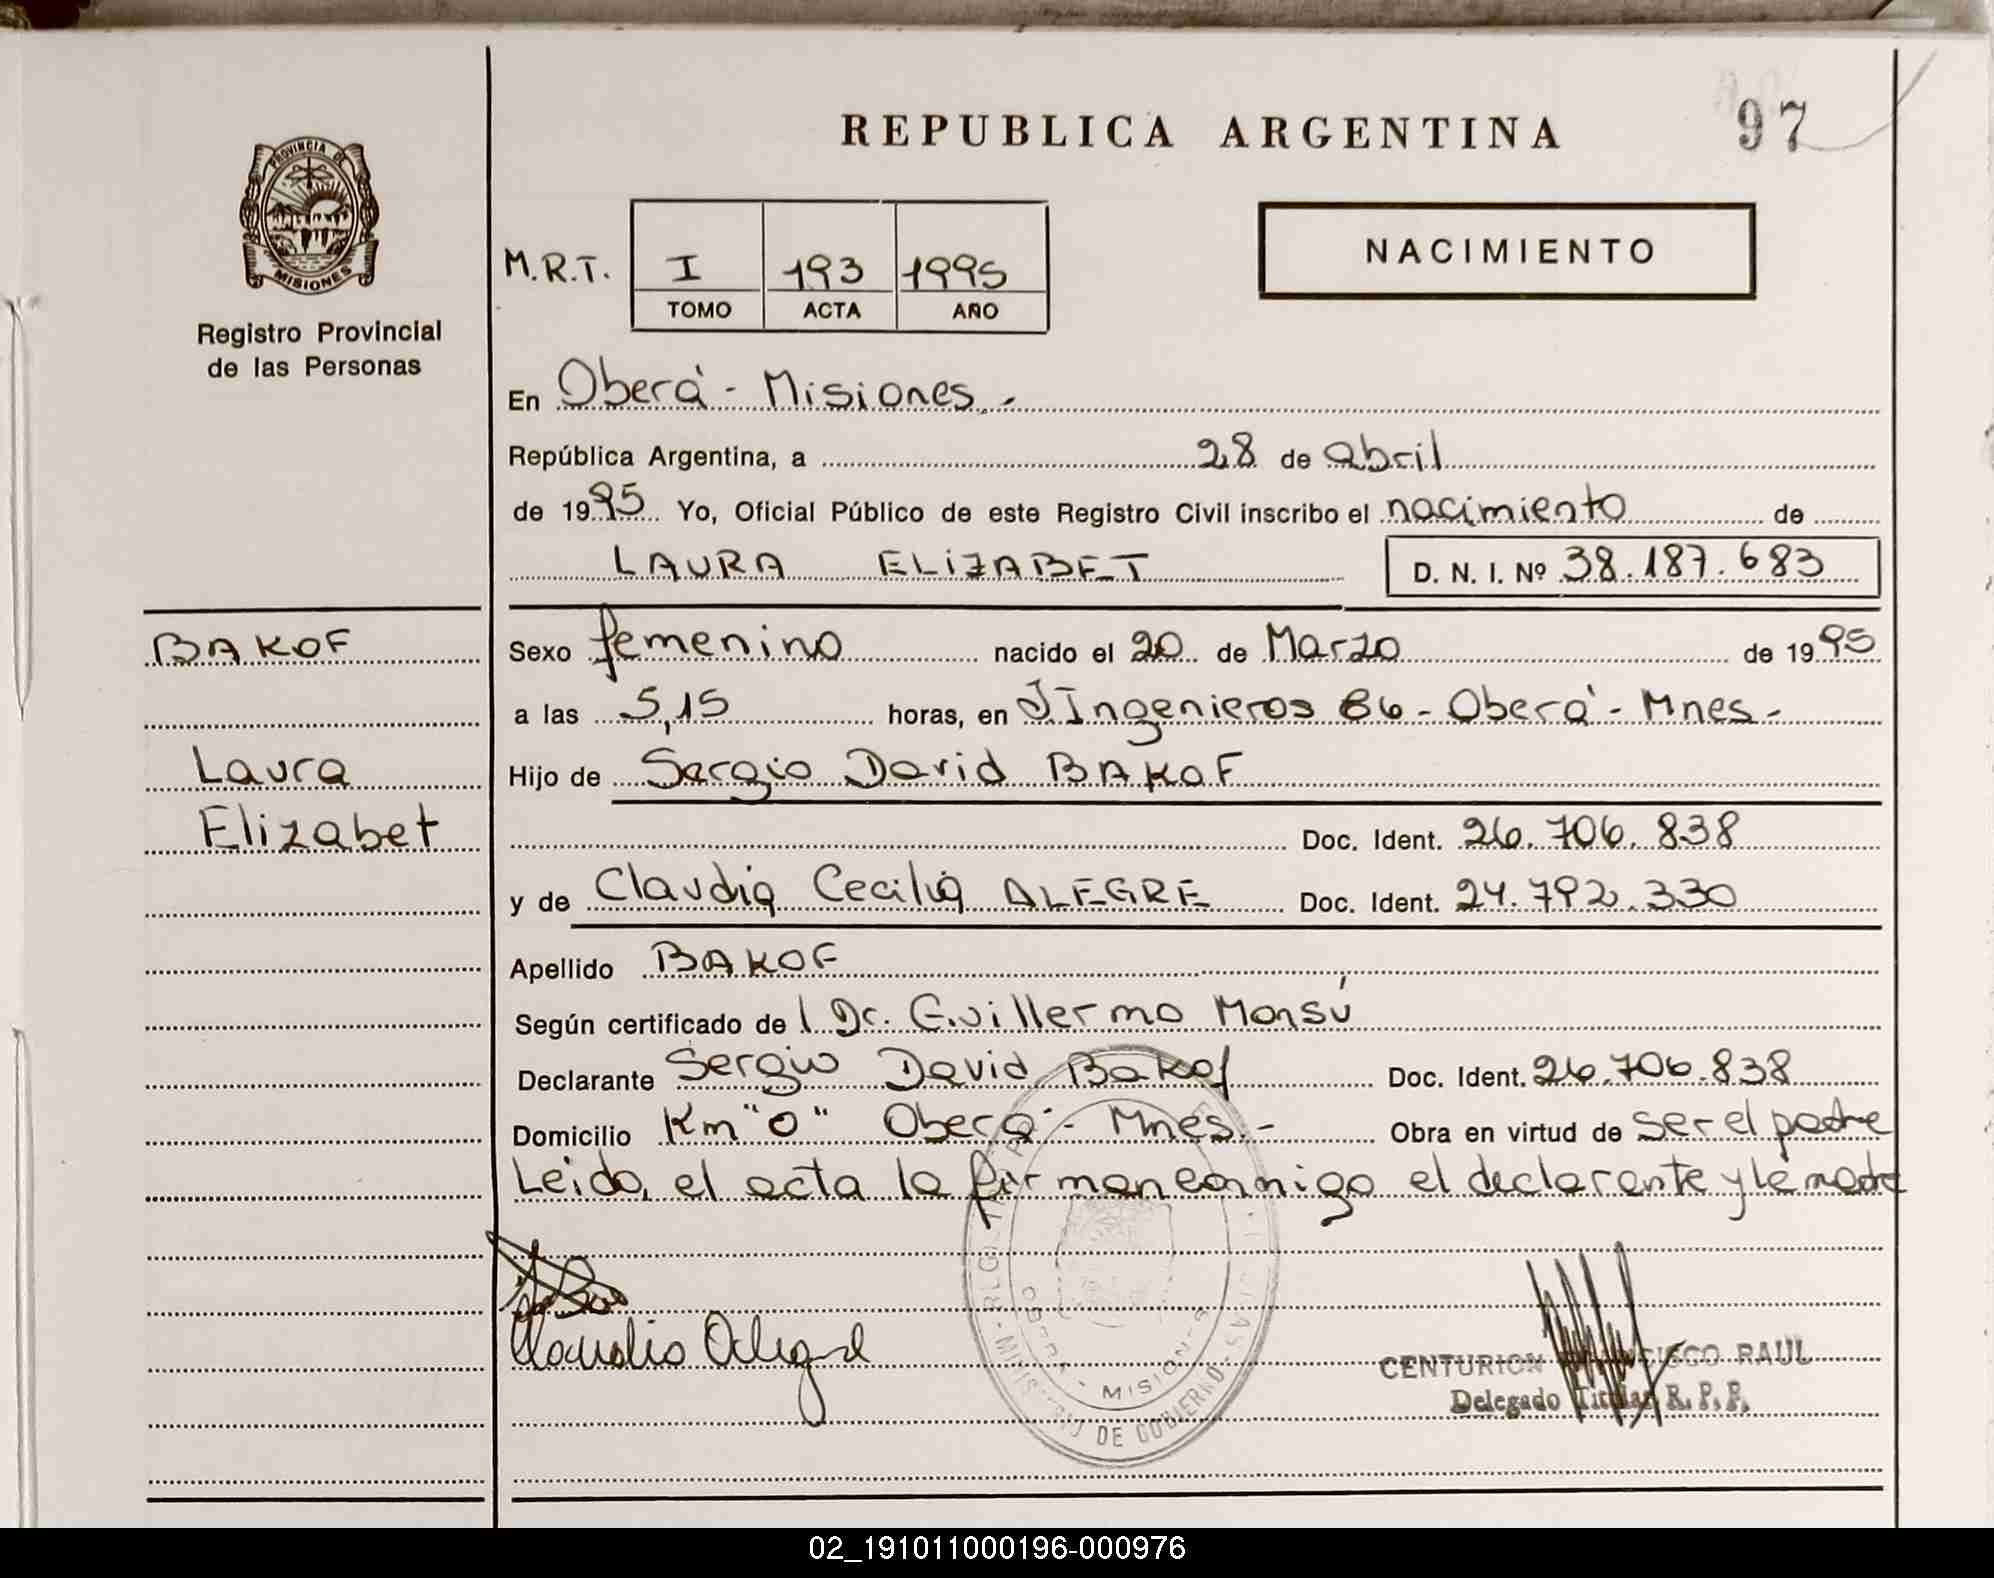 REPUBLICA ARGENTINA
97
PROVINCIA DE
MISIONES
Registro Provincial
de las Personas
M.R.T.
I 193 1995
TOMO ACTA AÑO
NACIMIENTO
En Oberá - Misiones.-
República Argentina, a 28 de abril
de 1995 Yo, Oficial Público de este Registro Civil inscribo el nacimiento de
LAURA ELIZABET D. N. I. Nº 38.187.683
BAKOF
Laura
Elizabet
Sexo femenino nacido el 20 de Marzo de 1995
a las 5,15 horas, en J.Ingenieros 86 - Oberá - Mnes -
Hijo de Sergio David BAKOF
Doc. Ident. 26.706.838
y de Claudia Cecilia ALEGRE Doc. Ident. 24.792.330
Apellido BAKOF
Según certificado de l Dr. Guillermo Monsú
Declarante Sergio David Bakof Doc. Ident. 26.706.838
Domicilio Km "0" Oberá - Mnes.- Obra en virtud de ser el padre
Leida, el acta la firman conmigo el declarante y la madre
Claudia Alegre
OBERA - MISIONES
MINISTERIO DE GOBIERNO
CENTURION FRANCISCO RAUL
Delegado Titular R. P. P.
02_191011000196-000976